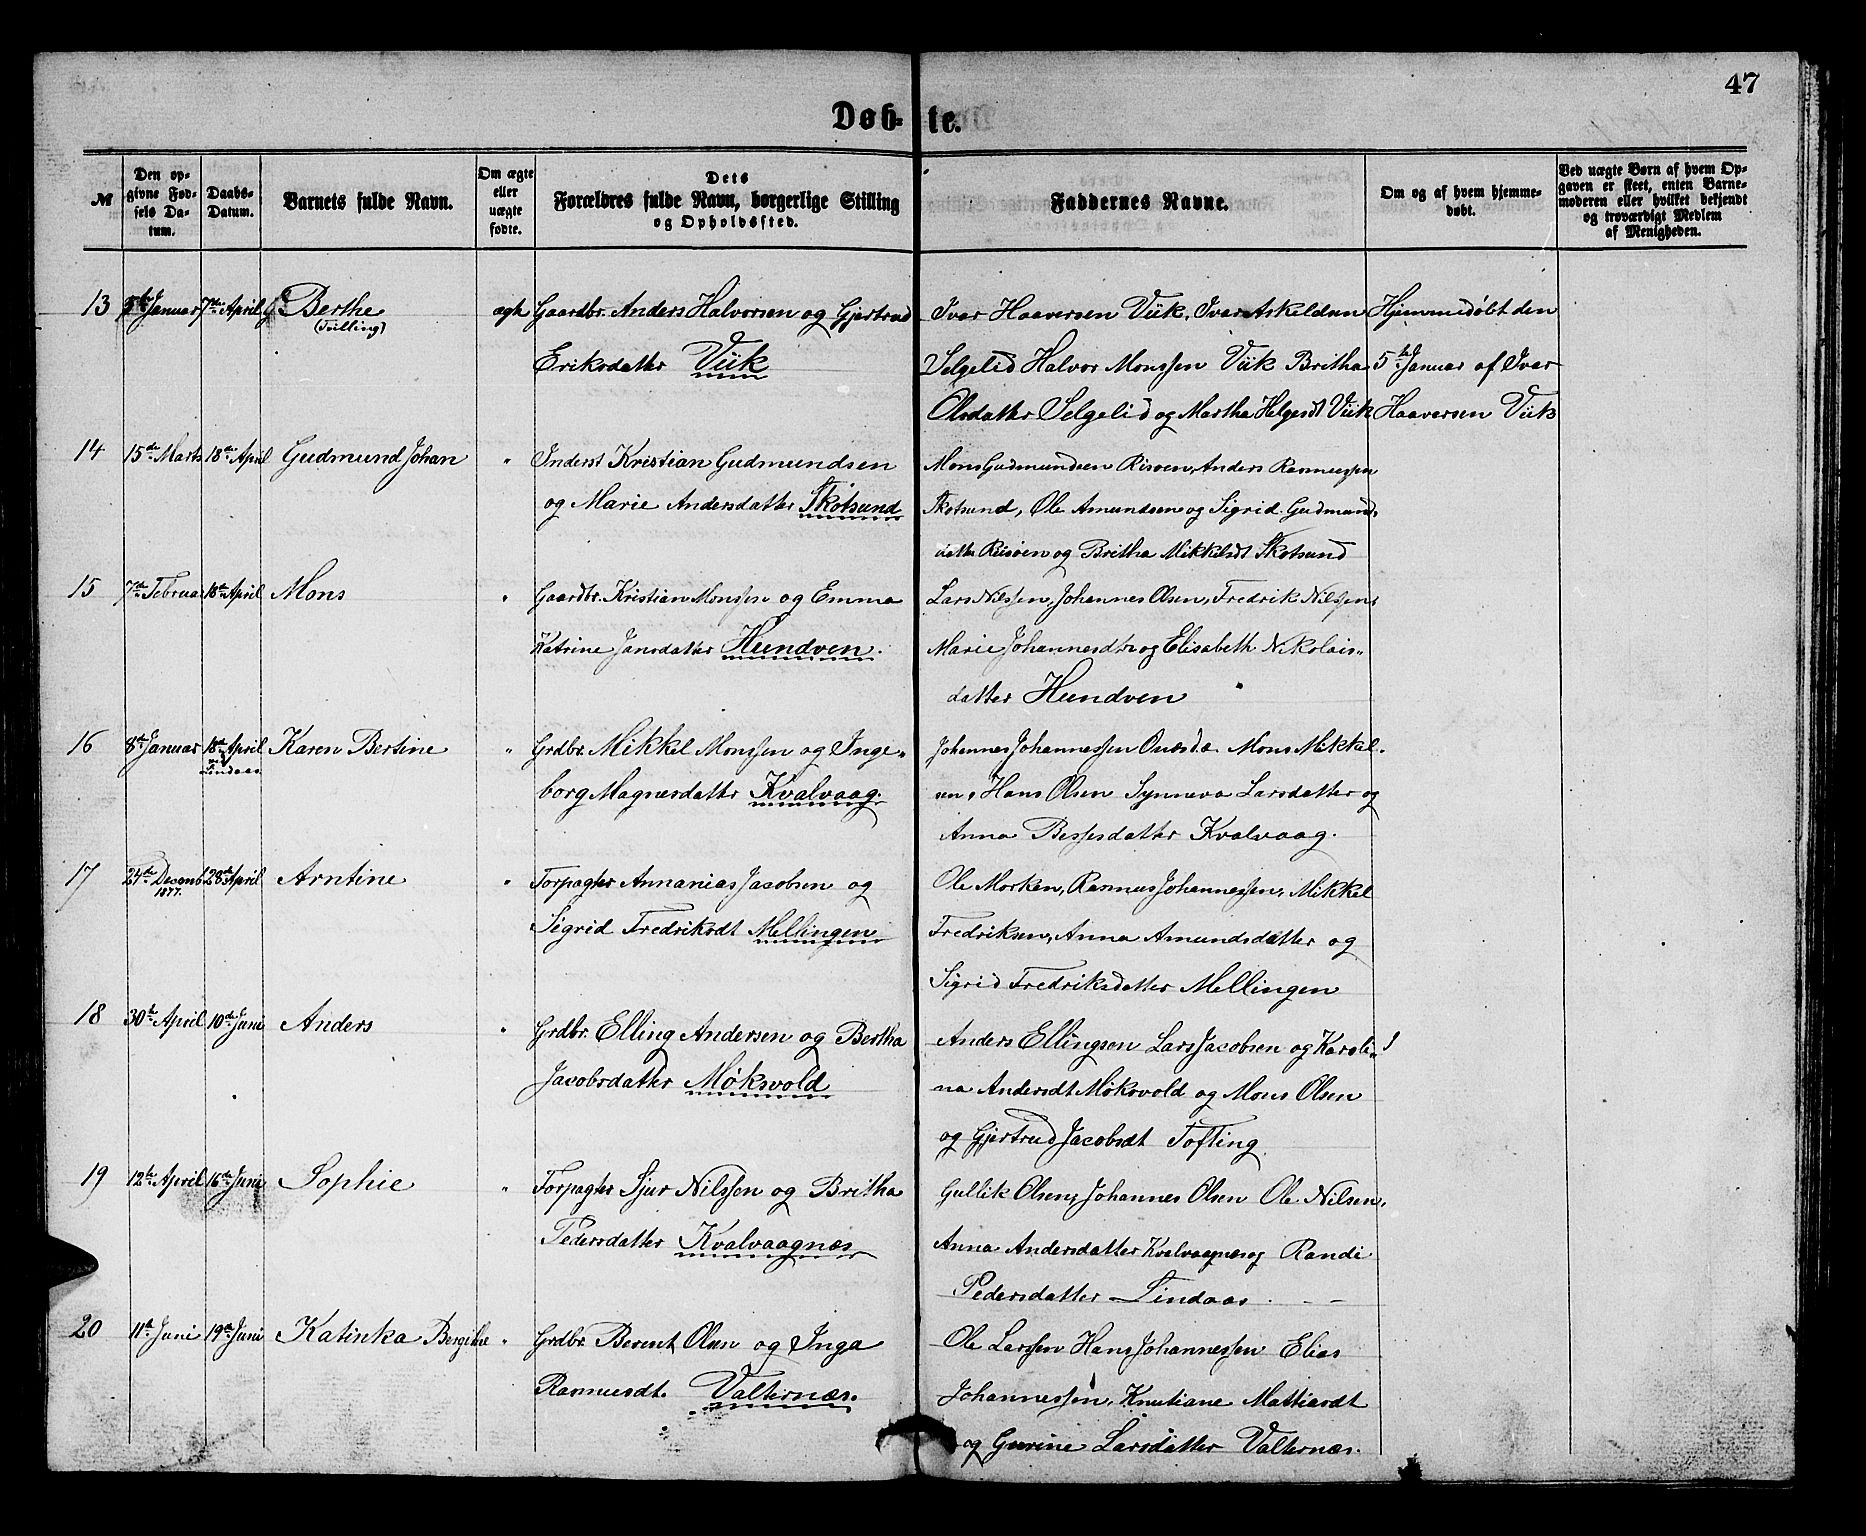 47
Døb- te.
№ | Den opgivne Fødsels Datum. | Daabs-Datum. | Barnets fulde Navn. | Om ægte eller uægte fødte. | Dets Forældres fulde Navn, borgerlige Stilling og Opholdssted. | Faddernes Navne. | Om og af hvem hjemmedøbt. | Ved uægte Børn af hvem Opgaven er skeet, enten Barnemoderen eller hvilket bekjendt og troværdigt Medlem af Menigheden.
13 | 5te Januar | 7de April | Berthe | ægte | Gaardbr. Anders Halvorsen og Gjertrud | Ivar Haaversen Viik, Ivar Askeldsen | Hjemmedøbt den
(Tvilling) | Eriksdatter Viik | Selgelid Halvor Monssen Viik Britha | 5te Januar af Ivar
Olsdatter Selgelid og Martha Helgesdt Viik | Haaversen Viik
14 | 15de Marts | 18de April | Gudmund Johan | " | Inderst Kristian Gudmundsen | Mons Gudmundsen Risøen, Anders Rasmussen
og Marie Andersdatter Skotsund | Skotsund, Ole Amundsen og Sigrid Gudmunds
datter Risøen og Britha Mikkelsdt Skotsund
15 | 7de Februar | 18de April | Mons | " | Gaardbr. Kristian Monssen og Emma | Lars Nilssen, Johannes Olsen, Fredrik Nilssen,
Katrine Jansdatter Hundven. | Marie Johannesdtr og Elisabeth Nikolais-
datter Hundven
16 | 8de Januar | 18de April | Karen Bertine | " | Grdbr. Mikkel Monssen og Inge- | Johannes Johannessen Mons Mikkel-
ved Lindaas | borg Magnesdatter Kvalvaag. | sen, Hans Olsen Synneva Larsdatter og
Anna Bessesdatter Kvalvaag.
17 | 24de Decemb. | 28de April | Arntine | " | Forpagter Annanias Jacobsen og | Ole Morken, Rasmus Johannessen, Mikkel
1877. | Sigrid Fredriksdt Mellingen | Fredriksen, Anna Amundsdatter og
Sigrid Fredriksdatter Mellingen
18 | 30te April | 10de Juni | Anders | " | Grdbr. Elling Andersen og Bertha | Anders Ellingsen Lars Jacobsen og Karoli-
Jacobsdatter Møksvold | na Andersdt Møksvold og Mons Olsen
og Gjertrud Jacobsdt Tofting
19 | 12te April | 16de Juni | Sophie | " | Forpagter Sjur Nilssen og Britha | Gullik Olsen, Johannes Olsen Ole Nilsen,
Pedersdatter Kvalvaagnæs | Anna Andersdatter Kvalvaagnæs og Randi
Pedersdatter Lindaas.
20 | 11te Juni | 19de Juni | Katinka Bergithe | " | Grdbr. Berent Olsen og Inga | Ole Larssen Hans Johannessen Elias
Rasmusdt. Valternæs. | Johannessen, Knutiane Mattiasdt
og Gurine Larsdatter Valternæs.